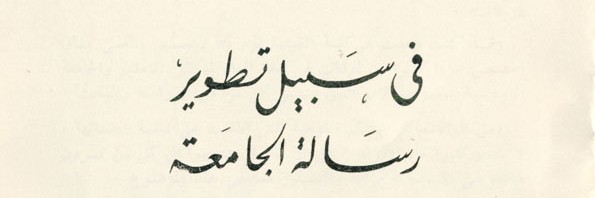 في سَبيل تطوير
رسَالة الجامعَة